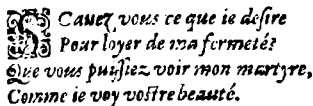 SCauez vous ce que ie desire
Pour loyer de ma fermeté?
Que vous puissiez voir mon martyre,
Comme ie voy vostre beauté.